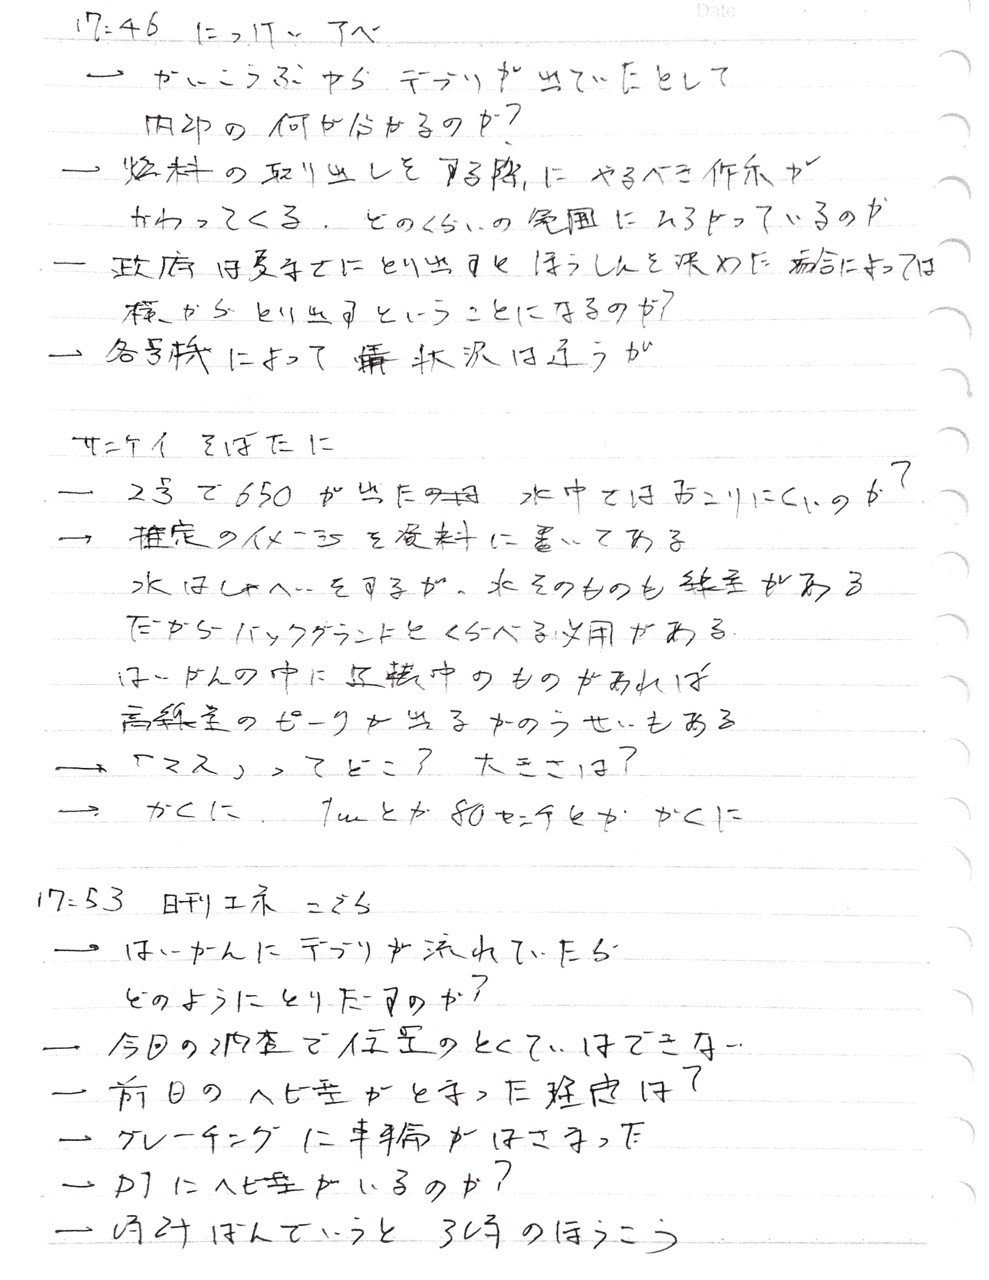 Date
17:46 にっけい アベ
→ かいこうぶから デブリが 出ていたとして
内部の 何が分かるのか?
→ 燃料の取り出しをする際に やるべき作業が
かわってくる. どのくらいの範囲に ひろがっているのか
→ 政府は夏までにとり出すとほうしんを決めた 場合によっては
横からとり出すということになるのか?
→ 各号機によって 状況は違うが
サンケイ そばたに
→ 2号で650が出た 水中ではおこりにくいのか?
→ 推定のイメージを資料に書いてある
水はしゃへいをするが、水そのものも線量がある
だからバックグランドとくらべる必用がある.
はいかんの中に 中のものがあれば
高線量のピークが出るかのうせいもある
→ 「マス」ってどこ? 大きさは?
→ かくに. 1mとか80センチとか かくに
17:53 日刊エネ こどら
→ はいかんにデブリが流れていたら
どのようにとりだすのか?
→ 今日の調査で位置のとくていはできない
→ 前日のヘビ型がとまった理由は?
→ グレーチングに車輪がはさまった
→ D7にヘビ型がいるのか?
→ 時計ばんでいうと 3時のほうこう